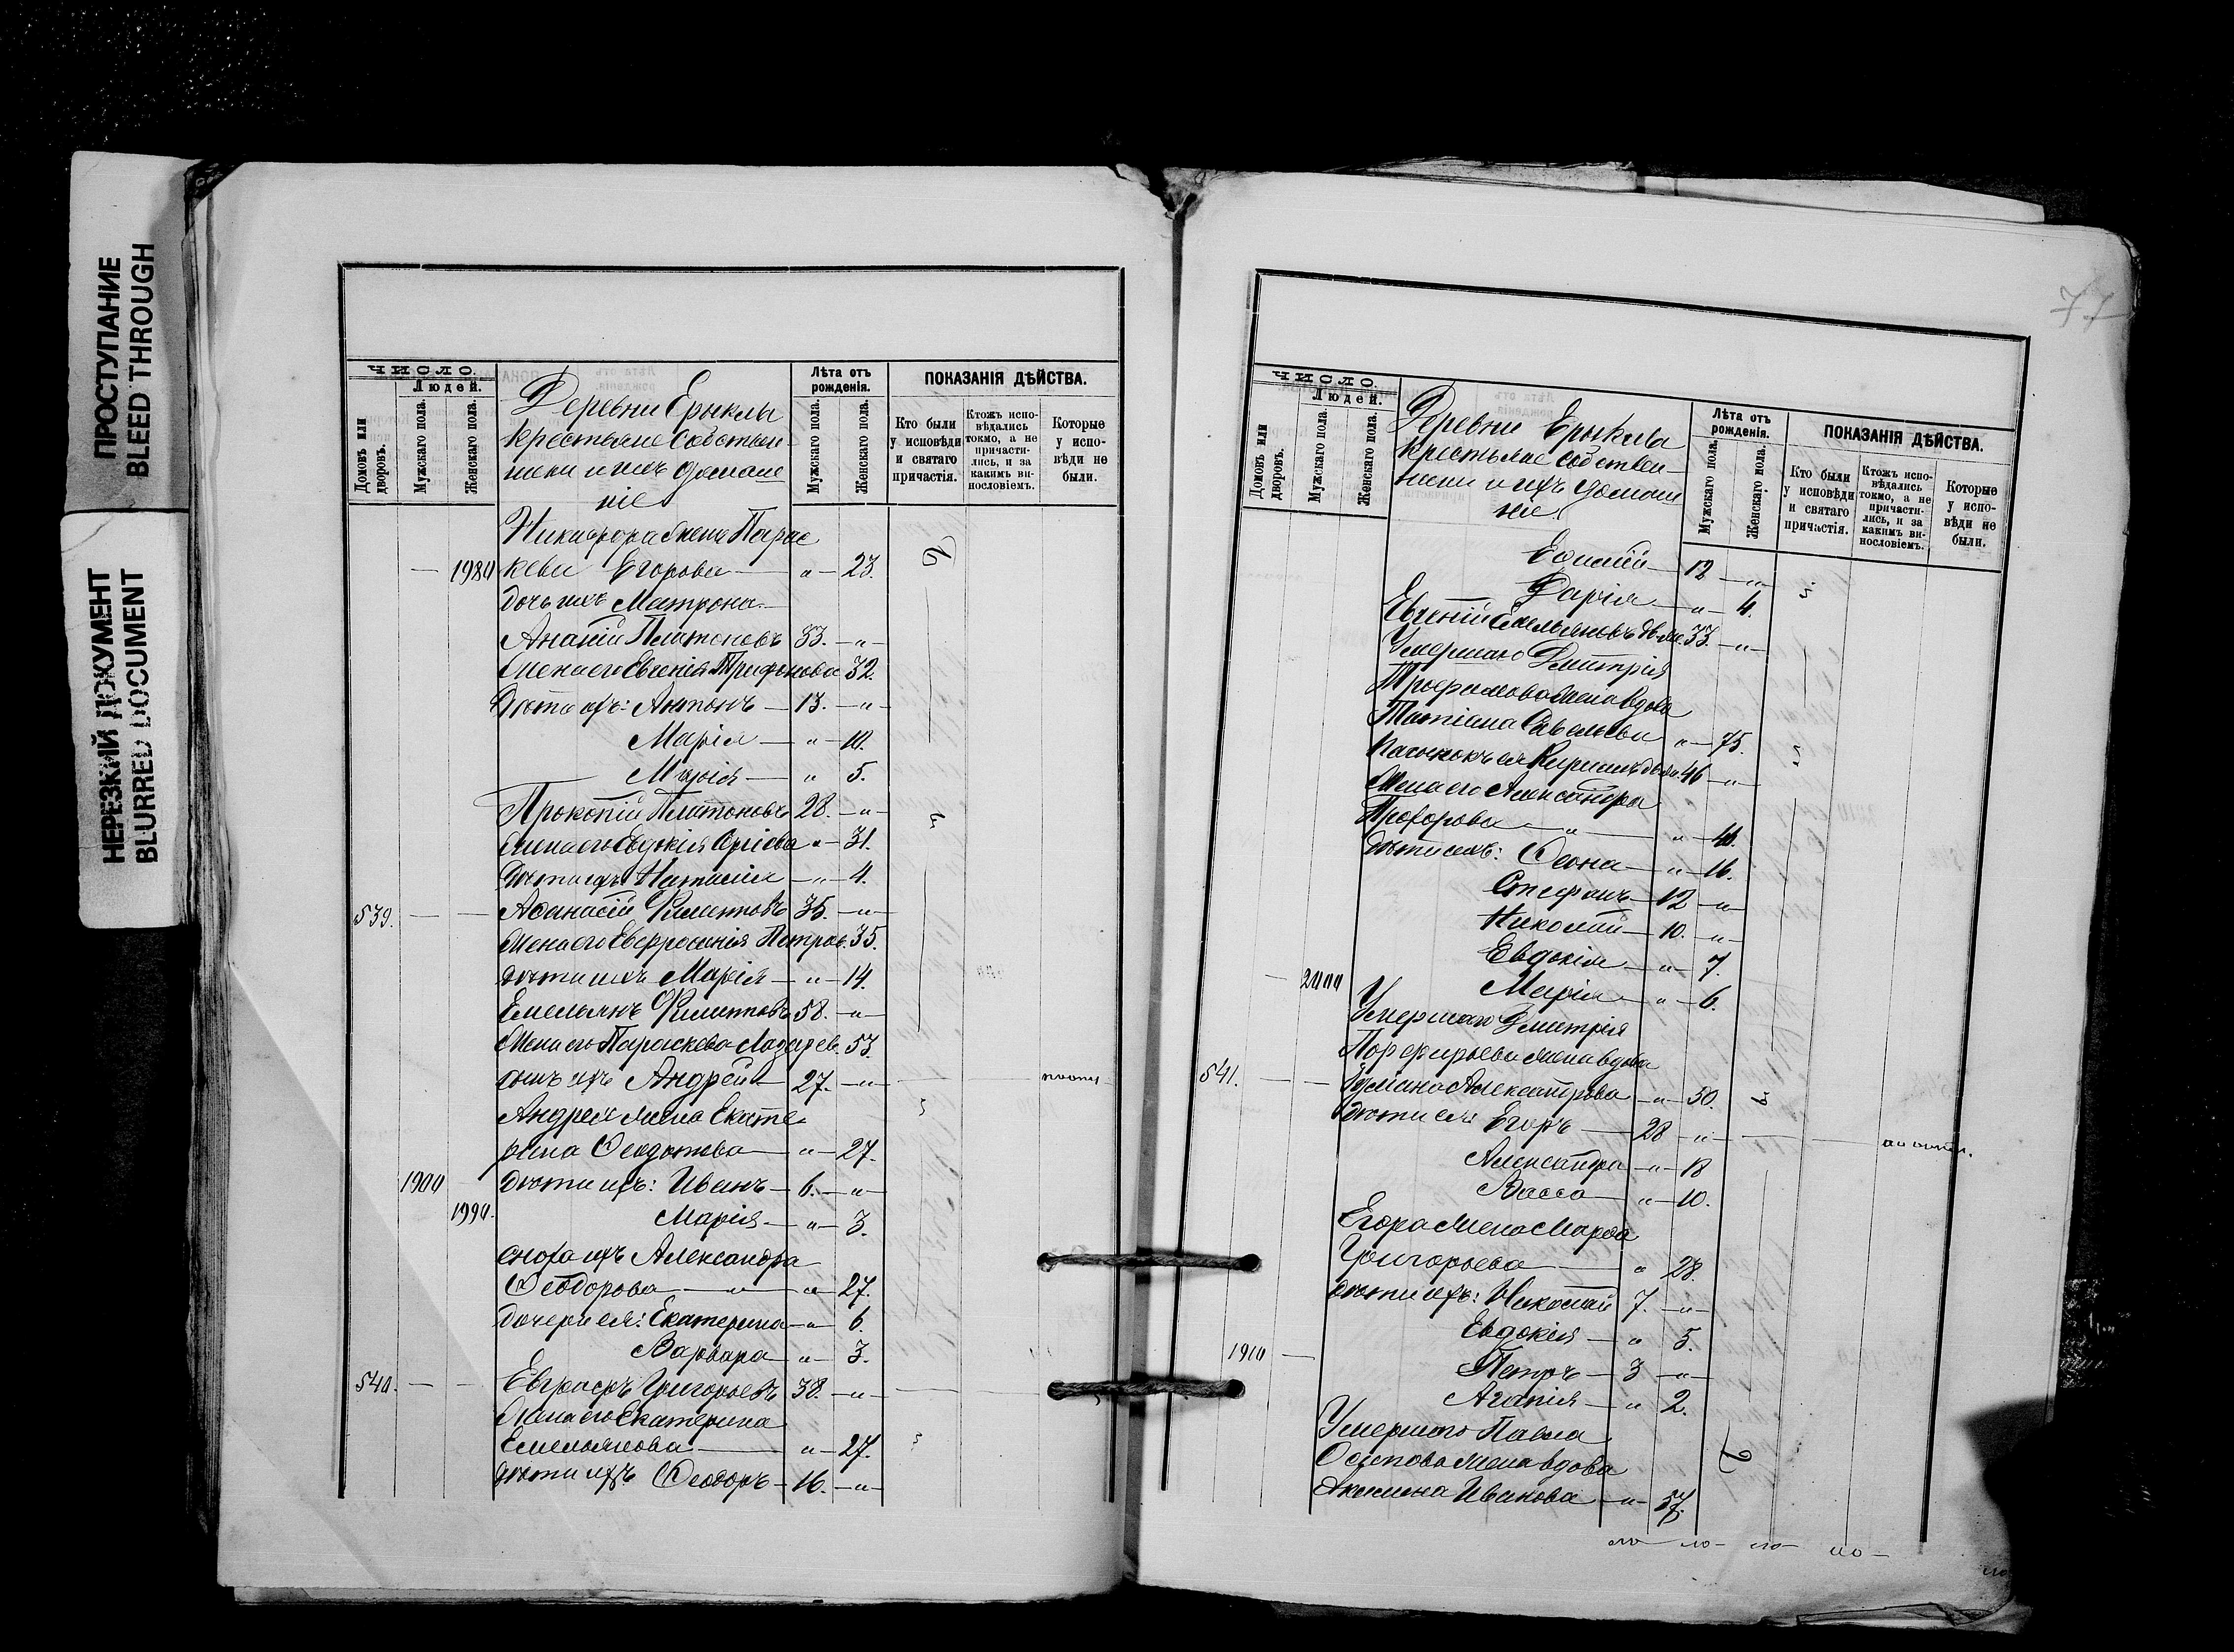 ПРОСТУПАНИЕ
BLEED THROUGH
НЕРЕЗКИЙ ДОКУМЕНТ
BLURRED DOCUMENT
ЧИСЛО.
Людей.
Домовъ или дворовъ.
Мужскаго пола.
Женскаго пола.
Деревни Ерыклы
крестьяне собствен-
ники и ихъ домаш
ніе
Лѣта отъ рожденія.
Мужскаго пола.
Женскаго пола.
ПОКАЗАНІЯ ДѢЙСТВА.
Кто были у исповѣди и святаго причастія.
Ктожъ исповѣдались токмо, а не причастились, и за какимъ винословіемъ.
Которые у исповѣди не были.
Никифора жена Парас
— 1980 кева Егорова — „ — 23.
дочь ихъ Матрона —
Ананій Платоновъ 33. — „ —
Жена его Евгенія Трифонова 32.
Дѣти ихъ: Антонъ — 13. — „ —
Марія — „ — 10.
Марія — „ 5.
Прокопій Платоновъ 28. — „ —
жена его Евдокія — 31.
Дѣти ихъ Наталія — „ — 4.
539. — — Аѳанасій Филипповъ 35. — „ —
Жена его Евфросинія Петров. 35.
дѣти ихъ Марія — „ — 14.
Емельянъ Филипповъ 58. — „ —
Жена его Параскева Лазарев. 53.
сынъ ихъ Андрей — 27. — „ —
Андрея жена Екате-
рина Ѳеодотова — „ — 27.
1900 дѣти ихъ: Иванъ — 6. — „ —
1990. Марія — „ — 3.
сноха ихъ Александра
Ѳеодорова — „ — „ — 27.
дочери ея: Екатерина — „ — 6.
Варвара — „ — 3.
540. — — Евграфъ Григорьевъ 38. — „ —
Жена его Екатерина
Емельянова — „ — 27.
дѣти ихъ Ѳеодоръ — 16. — „ —
77
ЧИСЛО.
Людей.
Домовъ или дворовъ.
Мужскаго пола.
Женскаго пола.
Деревни Ерыклы
крестьяне собствен-
ники и ихъ домаш
ніе.
Лѣта отъ рожденія.
Мужскаго пола.
Женскаго пола.
ПОКАЗАНІЯ ДѢЙСТВА.
Кто были у исповѣди и святаго причастія.
Ктожъ исповѣдались токмо, а не причастились, и за какимъ винословіемъ.
Которые у исповѣди не были.
12 — „ —
Дарія — „ — 4.
Евгеній Емельяновъ 33. — „ —
Умершаго Дмитрія
Трофимова жена вдова
Татіана Савельева „ — 75.
Пасынокъ ея Кириллъ 46 — „ —
Жена его Александра
Прохорова — „ — „ — 40.
дѣти ихъ: — „ — 16.
Стефанъ — 12 — „ —
Николай — 10. — „ —
Евдокія — „ — 7.
— 2000 Марія — „ — 6.
Умершаго Дмитрія
Порфирьева жена вдова
541. — — Александрова — „ — 50.
дѣти ея: Егоръ — 28 — „ —
Александра — „ — 18
Васса — „ — 10.
Егора жена Марѳа
Григорьева — „ 28.
дѣти ихъ: Николай 7. — „ —
Евдокія — „ 5.
1910 — Петръ — 3 — „ —
Агапія — „ 2.
Умершаго Павла
Осипова жена вдова
Акилина Иванова — „ — 57.